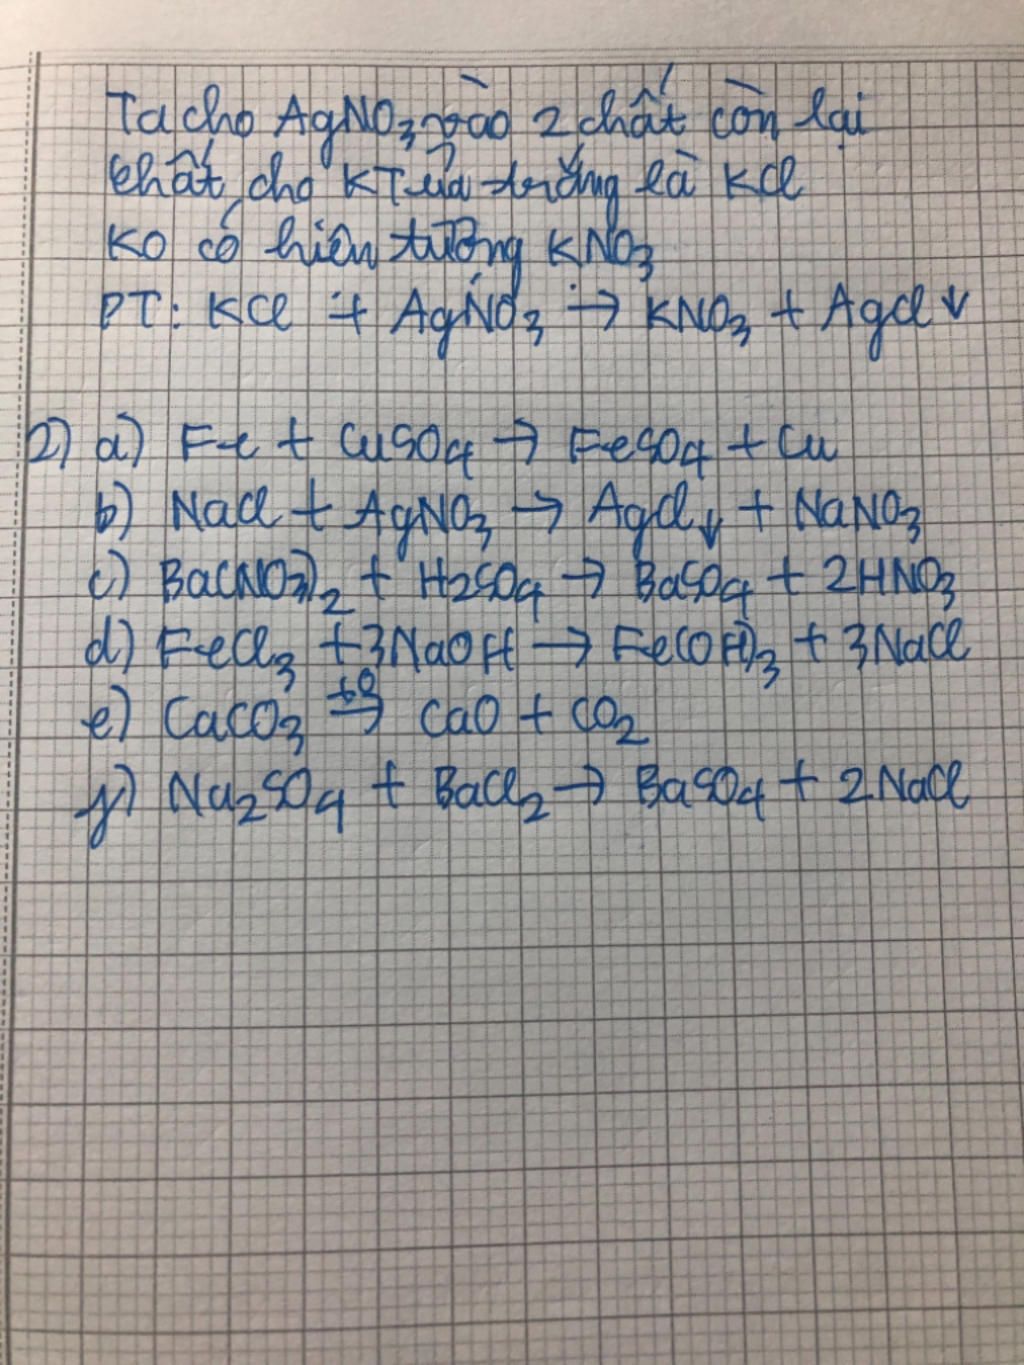 Ta cho AgNO3 vào 2 chất còn lại
chất cho KTủa trắng là KCl
KO có hiện tượng KNO3
PT: KCl + AgNO3 → KNO3 + AgCl ↓
2) a) Fe + CuSO4 → FeSO4 + Cu
b) NaCl + AgNO3 → AgCl↓ + NaNO3
c) Ba(NO3)2 + H2SO4 → BaSO4 + 2HNO3
d) FeCl3 + 3NaOH → Fe(OH)3 + 3NaCl
e) CaCO3 t0→ CaO + CO2
f) Na2SO4 + BaCl2 → BaSO4 + 2NaCl